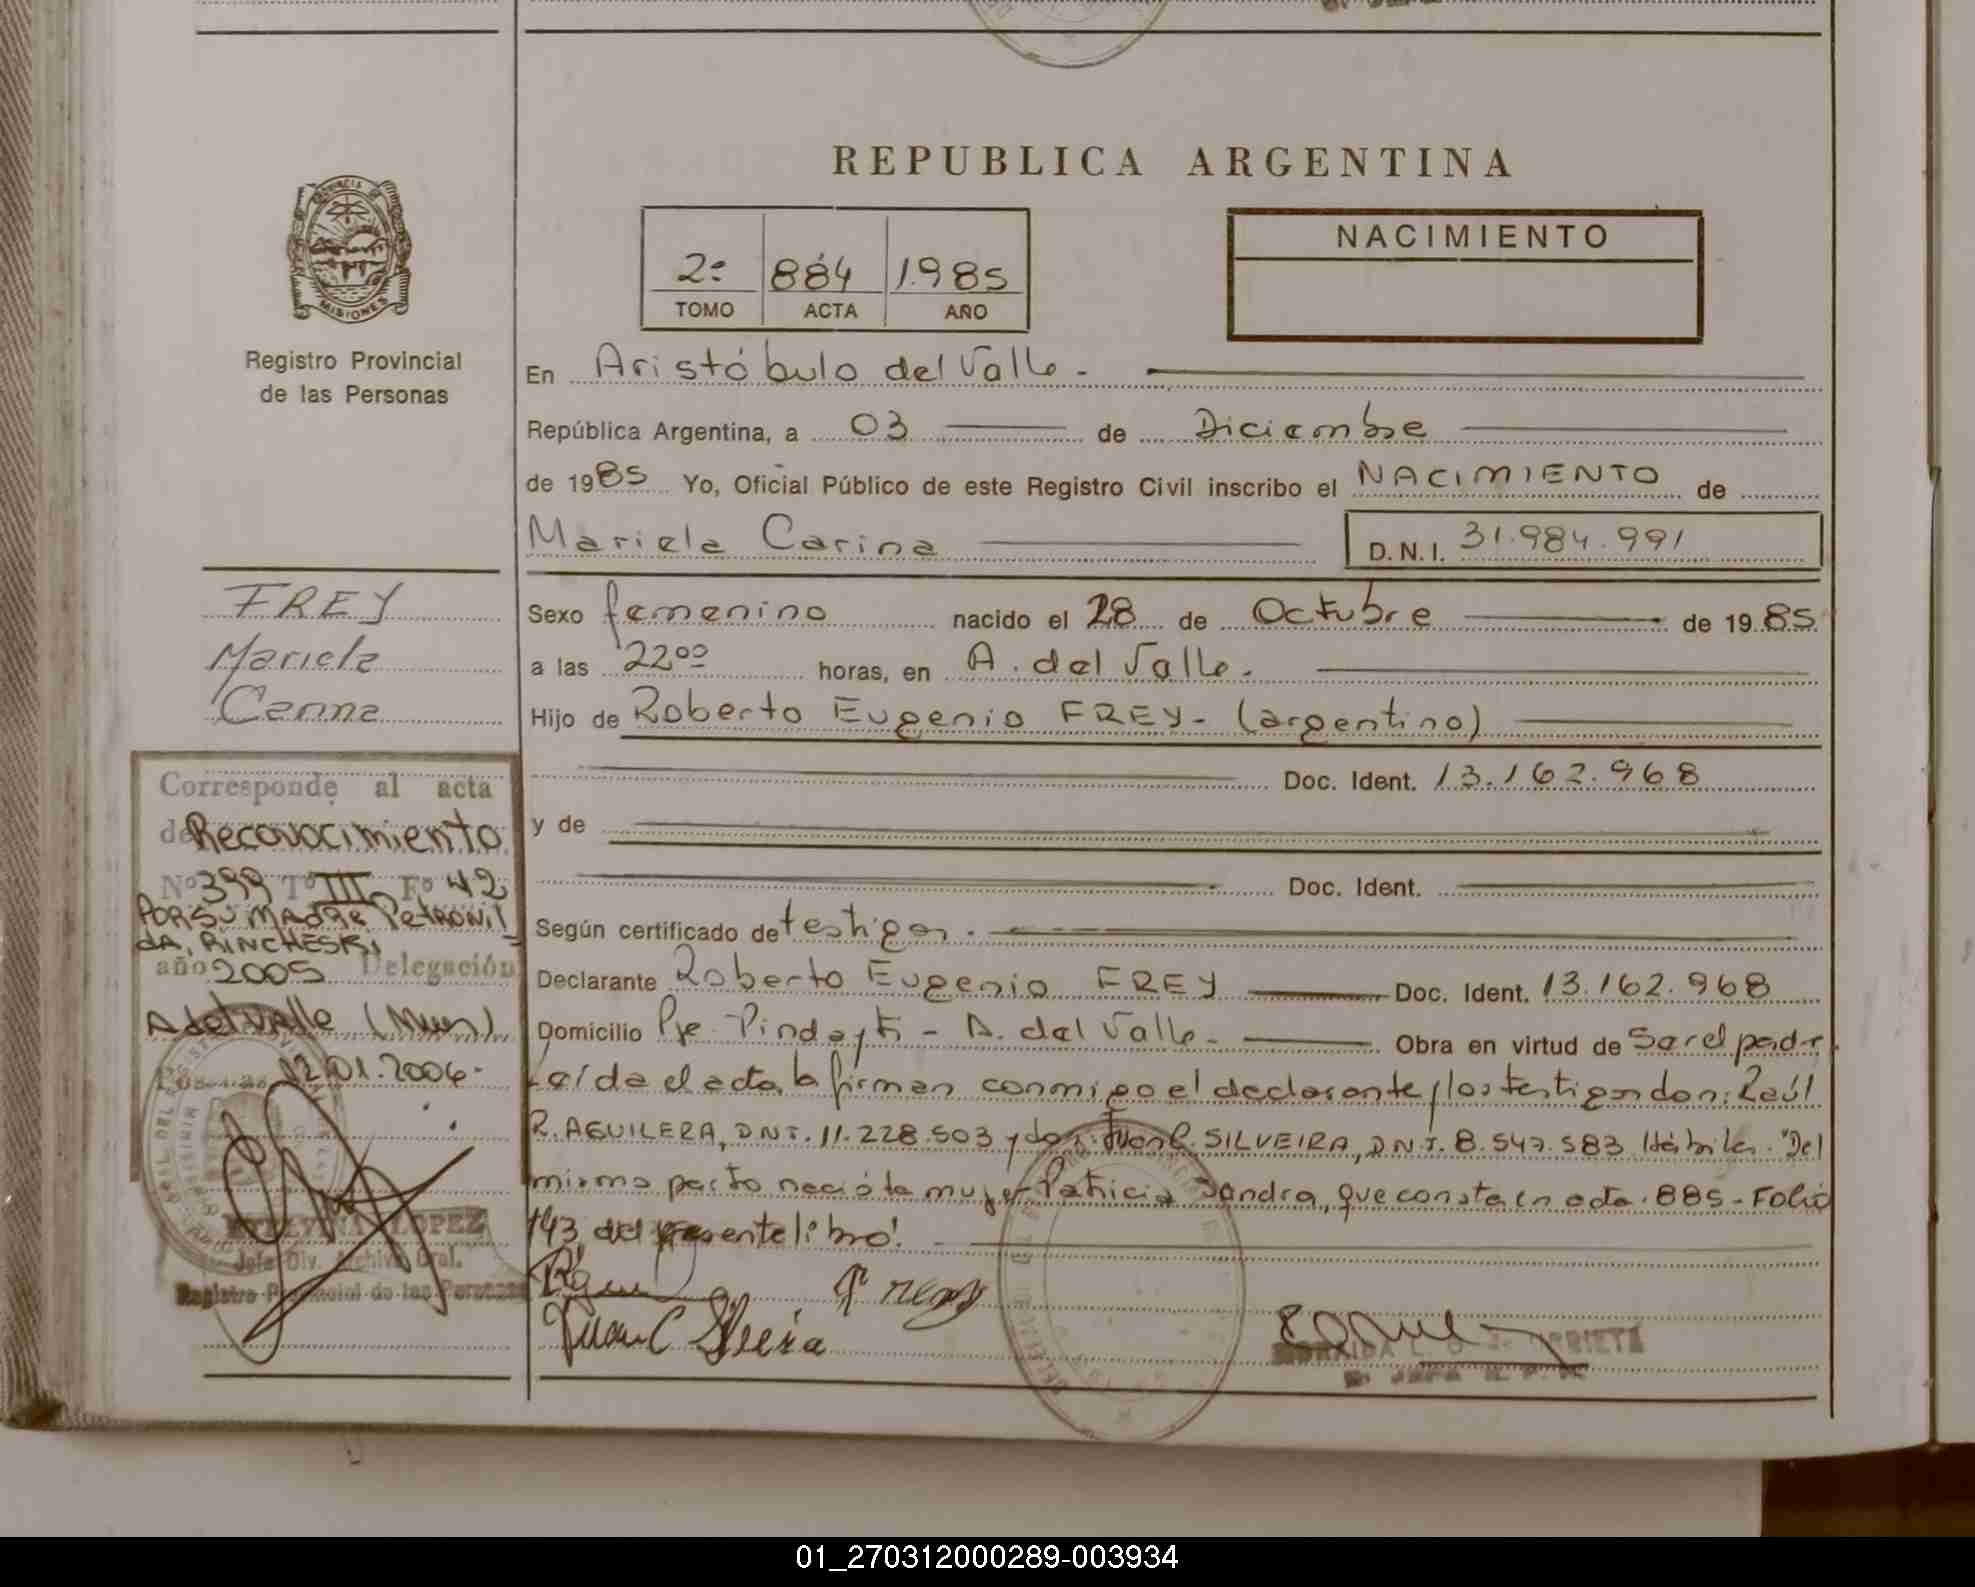 REPUBLICA ARGENTINA
PROVINCIA D
MISIONES
Registro Provincial
de las Personas
2º 884 1.985
TOMO ACTA AÑO
NACIMIENTO
En Aristóbulo del Valle.-
República Argentina, a 03 de Diciembre
de 1985 Yo, Oficial Público de este Registro Civil inscribo el NACIMIENTO de
Mariela Carina D.N.I. 31.984.991
Sexo femenino nacido el 28 de Octubre de 1985
a las 22⁰⁰ horas, en A. del Valle.
Hijo de Roberto Eugenio FREY- (argentino)
Doc. Ident. 13.162.968
y de
Doc. Ident.
Según certificado de testigos.
Declarante Roberto Eugenio FREY Doc. Ident. 13.162.968
Domicilio Pje. Pindayti - A. del Valle.- Obra en virtud de Ser el padre
Leída el acta, la firman conmigo el declarante y los testigos don: Raúl
R. AGUILERA, DNI. 11.228.503 y don: Juan C. SILVEIRA, DNI. 8.547.583 Hábiles. "Del
mismo parto nació la mujer Patricia Sandra, que consta en acta 885 - Folio
143 del presente libro".
Juan C Silveira
FREY
Mariela
Carina
Corresponde al acta
de Reconocimiento
Nº 399 Tº III Fº 42
POR SU MADRE PETRONIL-
DA, RINCHESKI
año 2005 Delegación
A del Valle (Mnes)
12.01.2006-
LOPEZ
Jefe Div. Archivo Gral.
Registro Provincial de las Personas
01_270312000289-003934